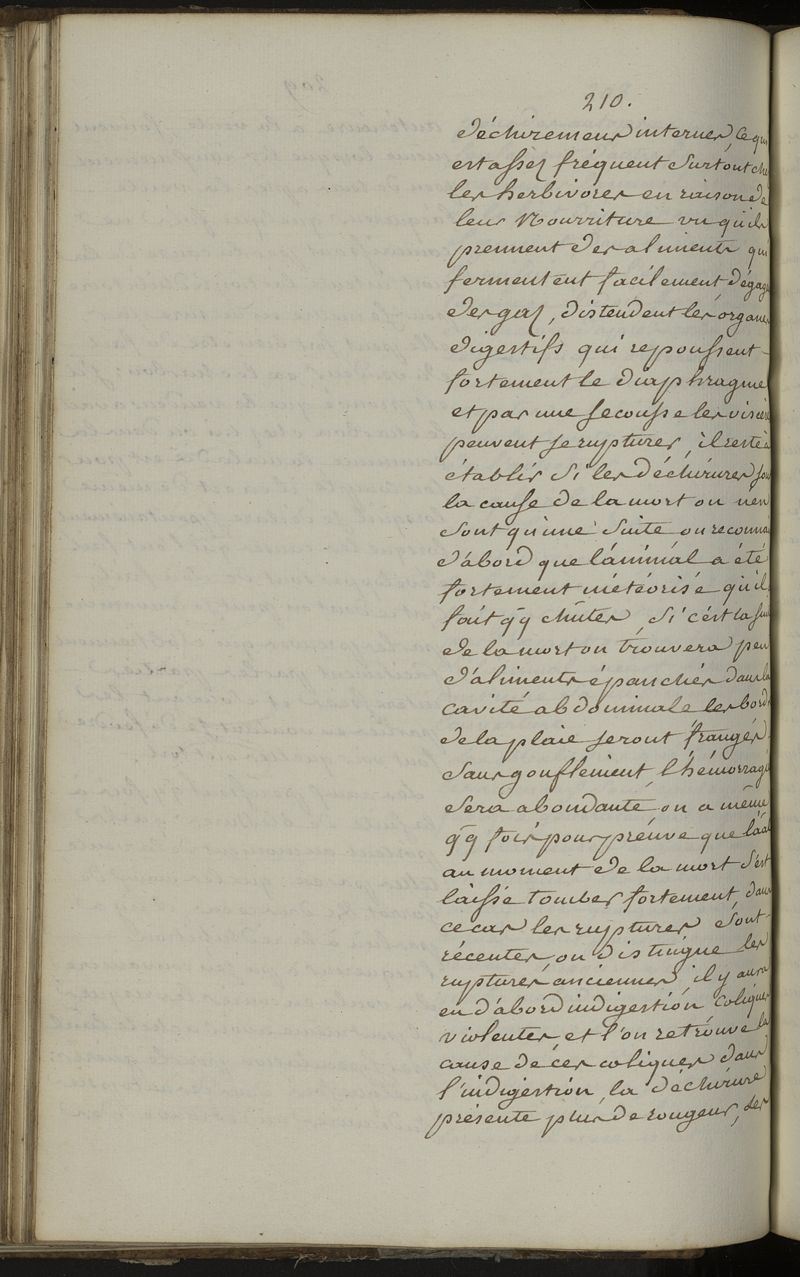 210.
déchiremens internes, ce qui
est assez fréquent surtout che
les herbivores en raison de
leur Nourriture vu qu'ils
prennent des aliments qui
fermentent facilement dégag
des gaz, distendent les organes
digestifs qui repoussent
fortement le diaphragme
et par une secousse les viscèr
peuvent se rupturer, il reste à
établir si les déchirures son
la cause de la mort ou n'en
sont qu'une suite on reconna
d'abord que l'animal a été
fortement météorisé qu'il
fait qq chûtes, si c'est la sui
de la mort on trouvera peu
d'aliments épanchés dans la
cavité abdominale les bords
de la plaie seront frangés
sans gonflement, l'hémorragi
sera abondante, on a même
qq fois pour preuve que l'aal
au moment de la mort s'est
laissé tomber fortement, dans
ce cas les ruptures sont
récentes, on distingue les
ruptures anciennes, il y aura
eu d'abord indigestion coliques
violentes et l'on retrouve la
cause de ces coliques dans
l'indigestion, la déchirure
présente plus de rougeur, des